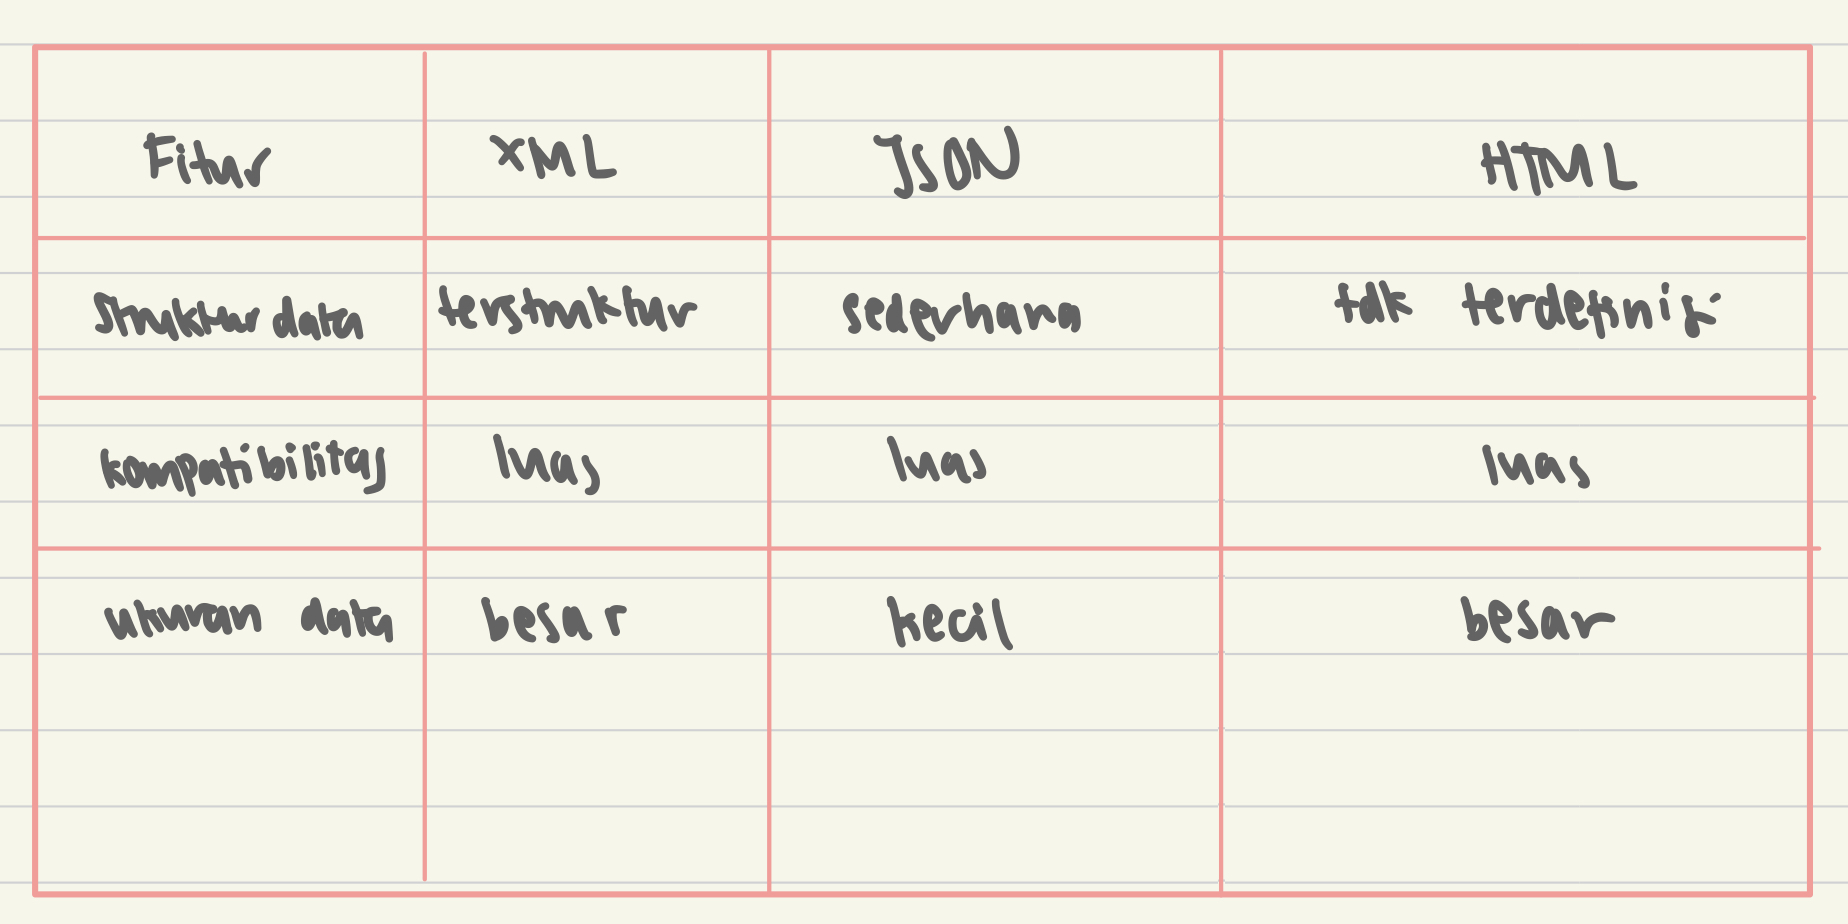 Fitur XML JSON HTML
Struktur data terstruktur sederhana tdk terdefinisi
kompatibilitas luas luas luas
ukuran data besar kecil besar